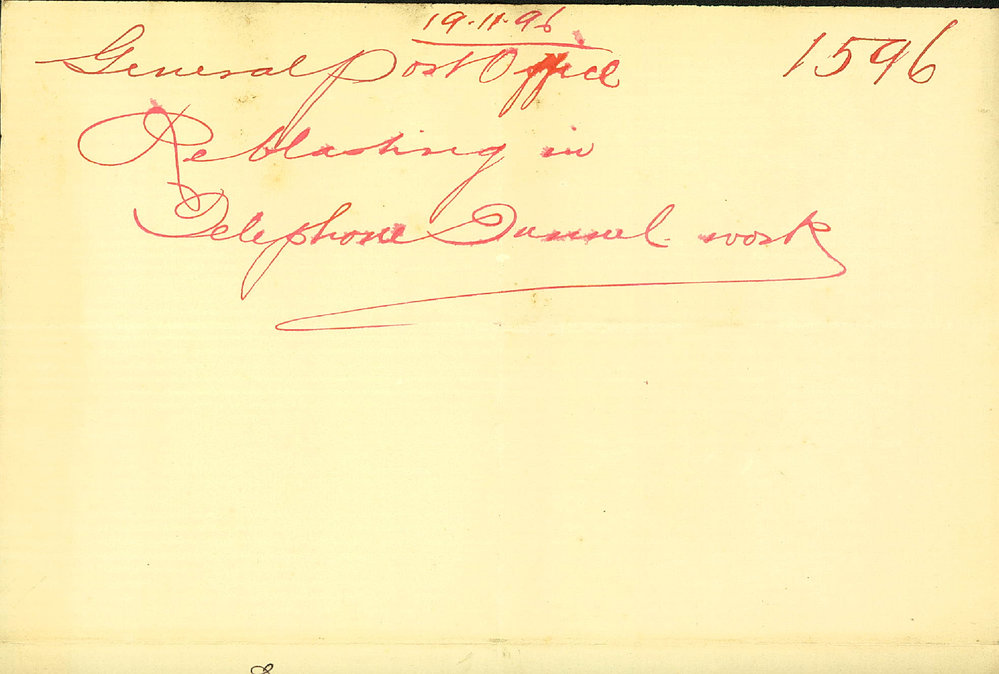 19.11.96
General Post Office 1596
Re blasting in
Telephone Tunnel work